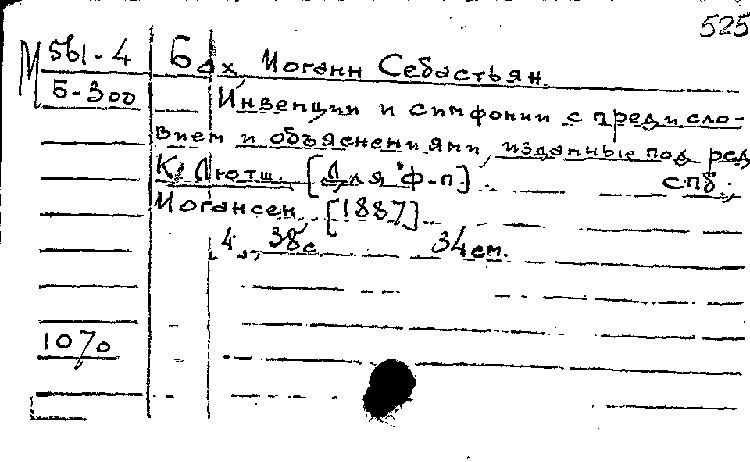 525
М 561-4
Б-300
Бах, Иоганн Себастьян.
Инвенции и симфонии с предисло-
вием и объяснениями, изданные под ред
К. Лютш. [Для ф-п] СПб.,
Иогансен, [1887].
4, 38с. 34см.
1070